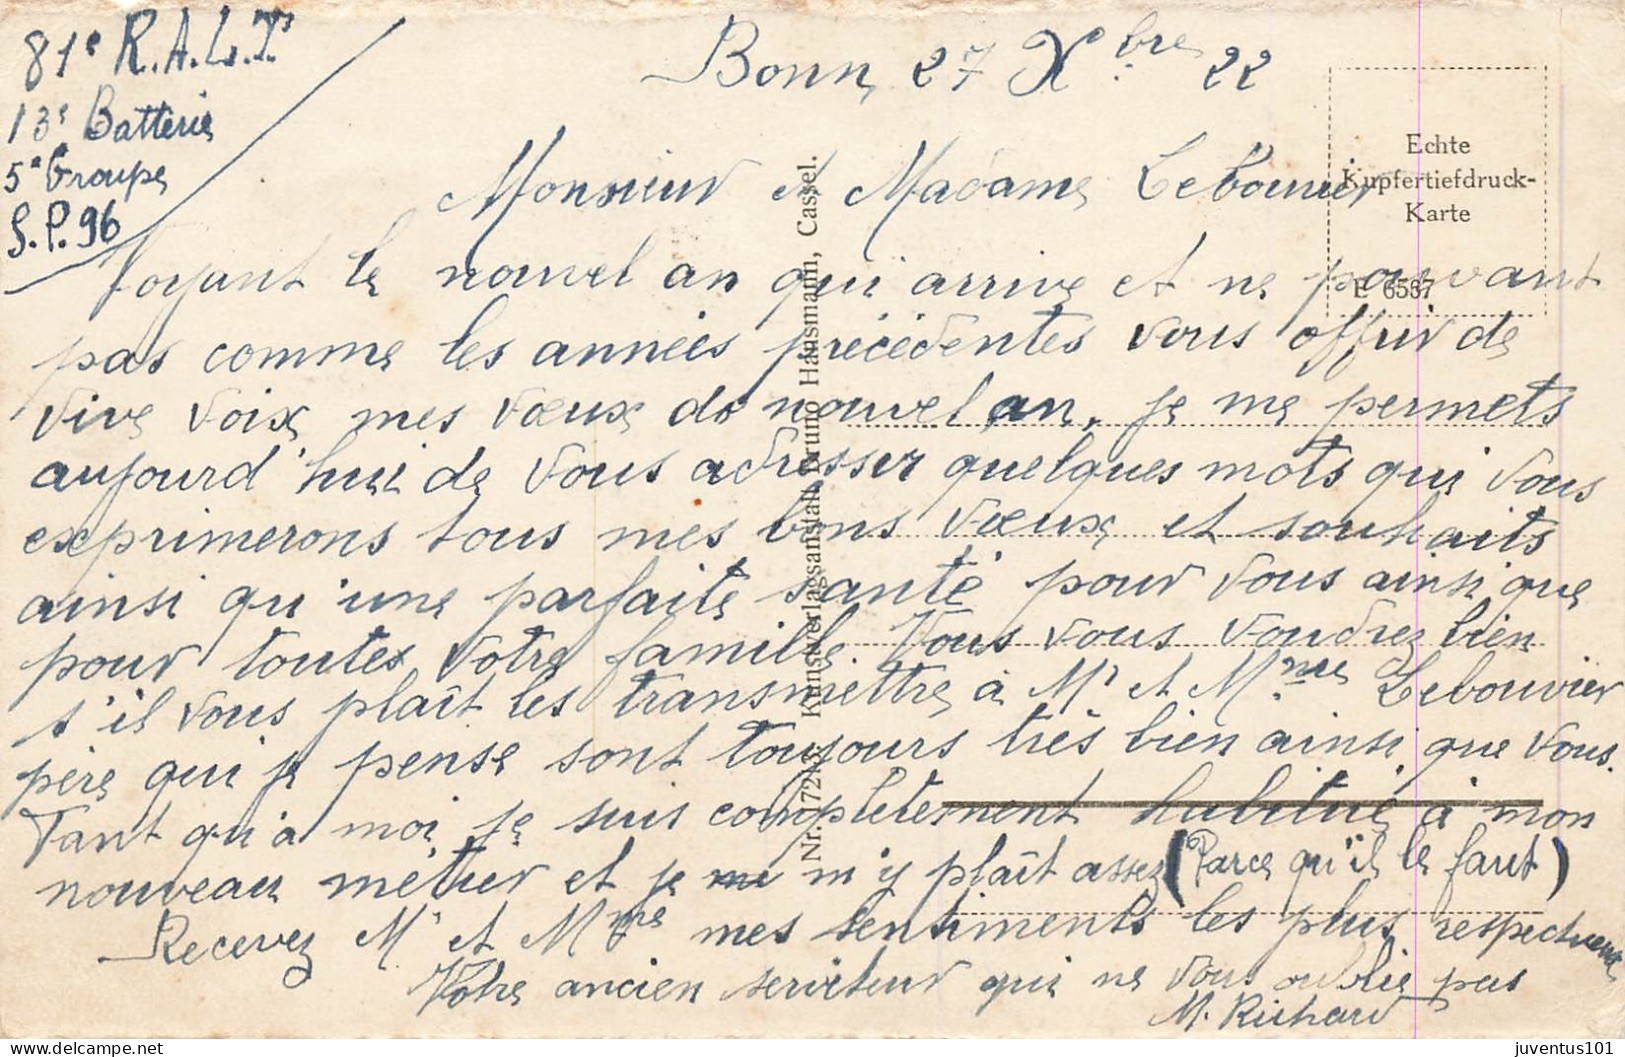 81e R.A.L.T.
13e Batterie
5e Groupe
S.P. 96
Bonn, 27 Xbre 22
Monsieur et Madame Lebouvier
Voyant le nouvel an qui arrive et ne pouvant
pas comme les années précédentes vous offrir de
vive voix mes vœux de nouvel an, je me permets
aujourd'hui de vous adresser quelques mots qui vous
exprimerons tous mes bons vœux et souhaits
ainsi qu'une parfaite santé pour vous ainsi que
pour toutes votre famille Vous vous voudrez bien
s'il vous plaît les transmettre à Mr et Mme Lebouvier
père qui je pense sont toujours très bien ainsi que vous.
Tant qu'à moi je suis complètement habitué à mon
nouveau métier et je m'y plaît assez (Parce qu'il le faut)
Recevez Mr et Mme mes sentiments les plus respectueux
Votre ancien serviteur qui ne vous oublie pas
M. Richard
Echte
Kupfertiefdruck-
Karte
E 6567
Nr. 17213 Kunstverlagsanstalt Bruno Hansmann, Cassel.
delcampe.net
juventus101